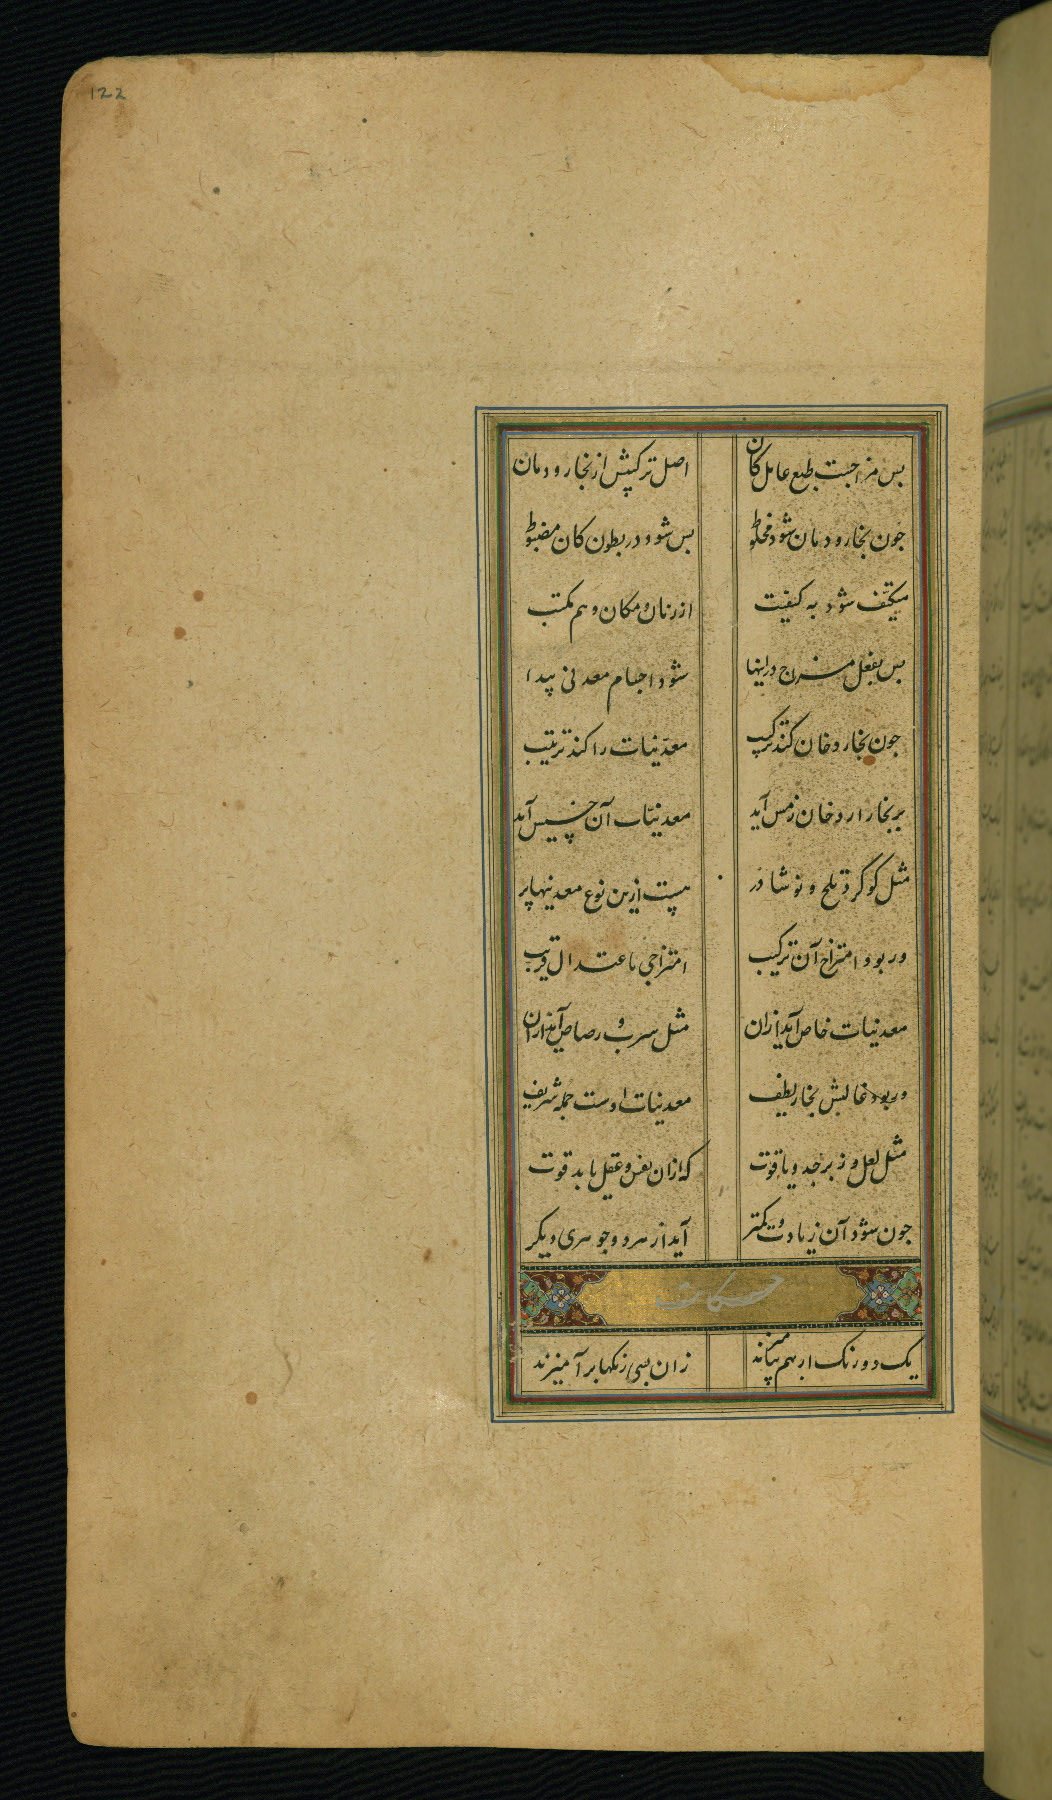 122
پس مزاجست طبع عامل کان اصل ترکیبش از بخار و دمان
جون بخار و دمان شود مخلوط پس شود در بطون کان مضبوط
متکیّف شود به کیفیت از زمان و مکان و هم مکتب
پس بفعل مزج در اینها شود اجسام معدنی پیدا
جون بخار و دخان کند ترکیب معدنیات را کند ترتیب
بر بخار ار دخان زمس آید معدنیّات آن خسیس آید
مثل کوکرد و ملح و نوشادر هست ازین نوع معدنیها پر
ور بود امتزاج آن ترکیب امتزاجی با عتدال قریب
معدنیات خاص آید ازان مثل سرب و رصاص آید ازان
ور بود غالبش بخار لطیف معدنیات اوست جمله شریف
مثل لعل و زبرجد و یاقوت که ازان نفس و عقل یابد قوت
جون شود آن زیادت و کمتر آید از هر دو جوهری دیکر
حکایت
یک دو رنک ار بهم بیامیزند زان بسی رنکها برآمیزند